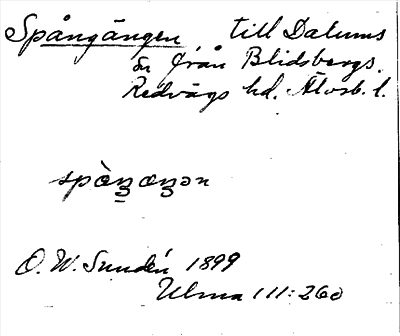 Spångängen till Dalums
sn från Blidsbergs
Redvägs hd. Älvsb. l.
O. W. Sundén 1899
Ulma 111:260